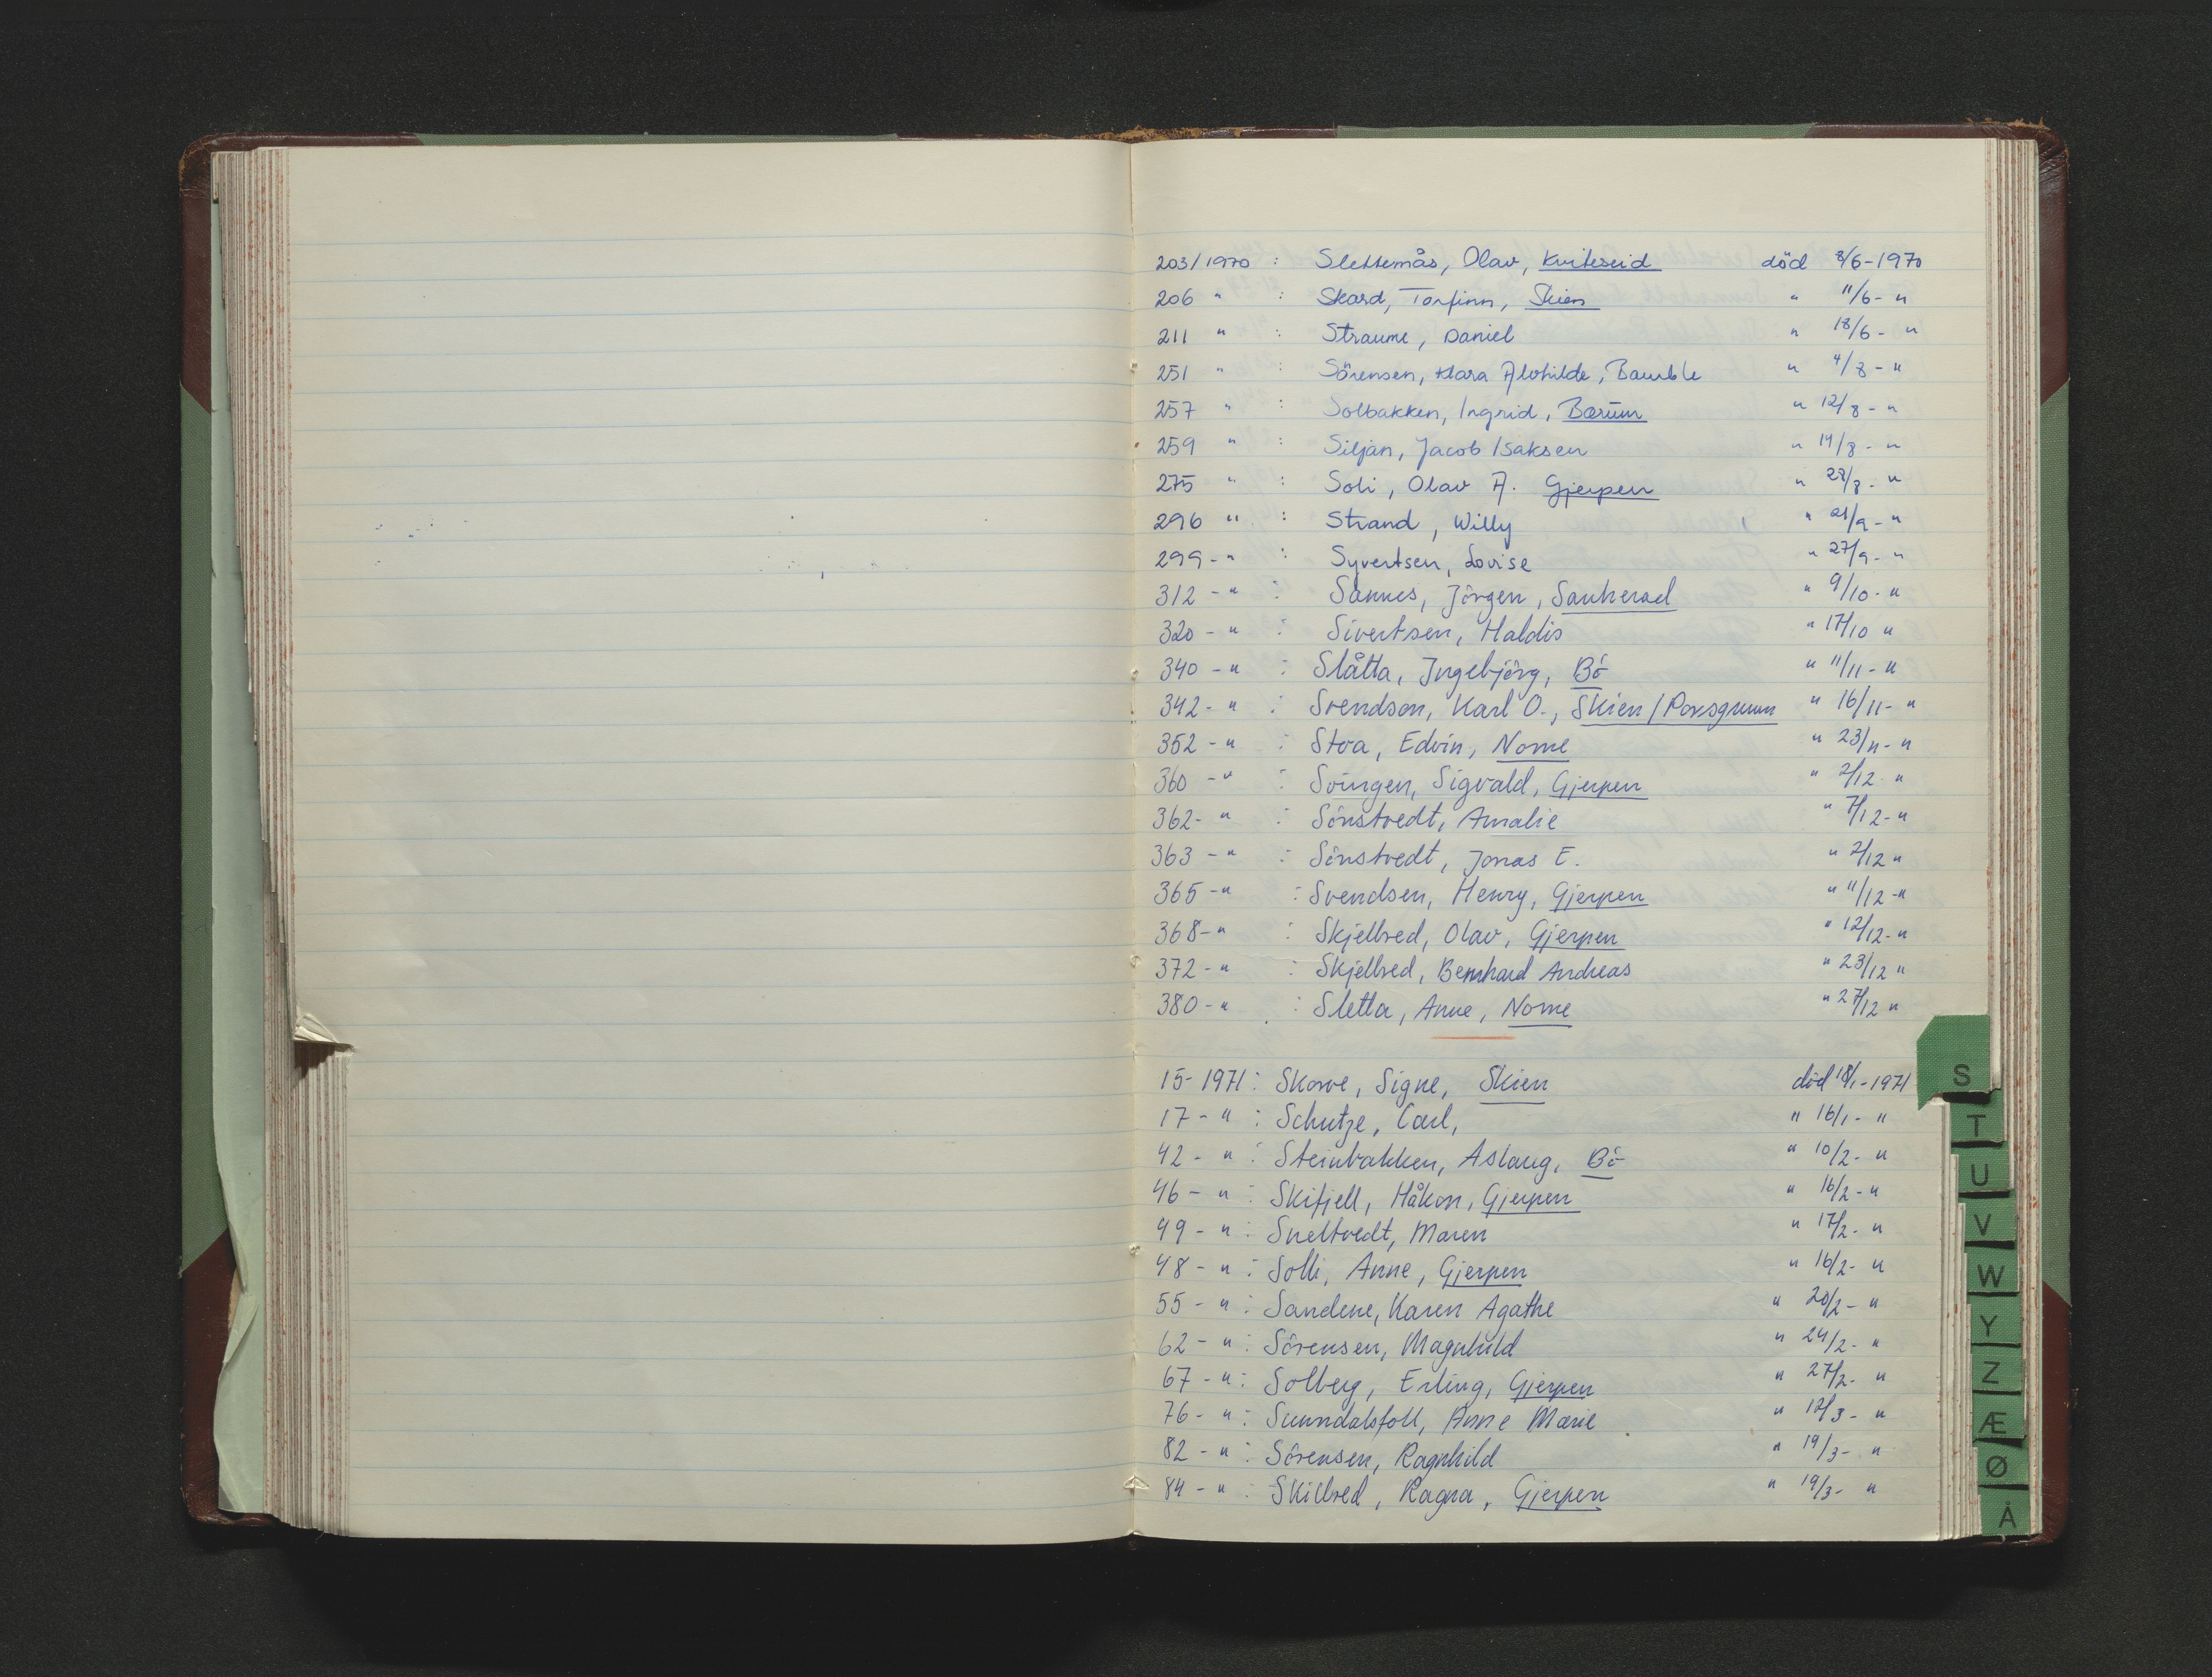 203/1970 : Slettemås, Olav, Kviteseid död 8/6-1970
206 " : Skard, Torfinn, Skien " 11/6- "
211 " : Straume, Daniel " 18/6- "
251 " : Sörensen, Klara Alvhilde, Bamble " 4/8 - "
257 " : Solbakken, Ingrid, Bærum " 12/8 - "
259 " : Siljan, Jacob Isaksen " 14/8 - "
275 " : Soli, Olav A. Gjerpen " 28/8 - "
296 " : Strand, Willy " 21/9 - "
299 - " : Syvertsen, Lovise " 27/9 - "
312 - " : Sannes, Jörgen, Sauherad " 9/10 - "
320 - " : Sivertsen, Haldis " 17/10 "
340 - " : Slåtta, Ingebjörg, Bö " 11/11 - "
342 - " : Svendsen, Karl O., Skien/Porsgrunn " 16/11 - "
352 - " : Stoa, Edvin, Nome " 23/11 - "
360 - " : Svingen, Sigvald, Gjerpen " 2/12 - "
362 - " : Sönstvedt, Amalie " 7/12 - "
363 - " : Sönstvedt, Jonas E. " 2/12 "
365 - " : Svendsen, Henry, Gjerpen " 11/12 - "
368 - " : Skjelbred, Olav, Gjerpen " 12/12 - "
372 - " : Skjelbred, Bernhard Andreas " 23/12 "
380 - " : Sletta, Anne, Nome " 27/12 "
15-1971 : Skarve, Signe, Skien död 18/1-1971
17 - " : Schutze, Carl, " 16/1 - "
42 - " : Steinbakken, Aslaug, Bö " 10/2 - "
46 - " : Skifjell, Håkon, Gjerpen " 16/2 - "
49 - " : Sneltvedt, Maren " 17/2 - "
48 - " : Solli, Anne, Gjerpen " 16/2 - "
55 - " : Sandene, Karen Agathe " 20/2 - "
62 - " : Sörensen, Magnhild " 24/2 - "
67 - " : Solberg, Erling, Gjerpen " 27/2 - "
76 - " : Sunndalsfoll, Anne Marie " 12/3 - "
82 - " : Sörensen, Ragnhild " 19/3 - "
84 - " : Skilbred, Ragna, Gjerpen " 19/3 - "
S
T
U
V
W
Y
Z
Æ
Ø
Å